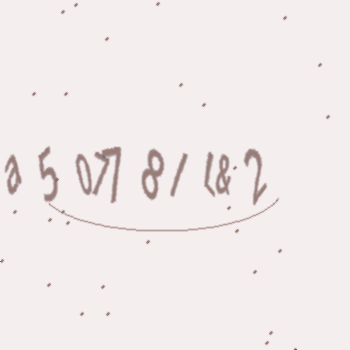 a 5 077 8 / l & 2